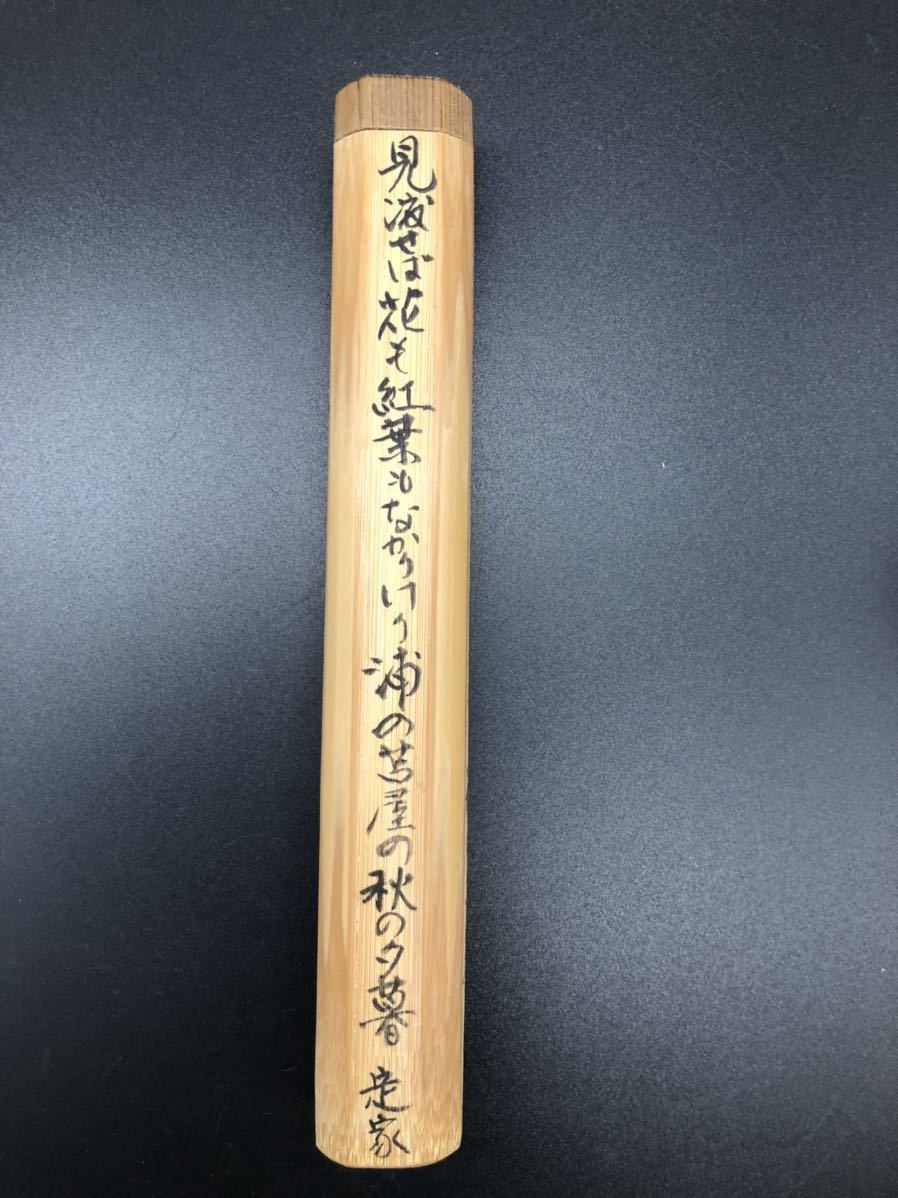 見渡せば花も紅葉もなかりけり浦の苫屋の秋の夕暮 定家